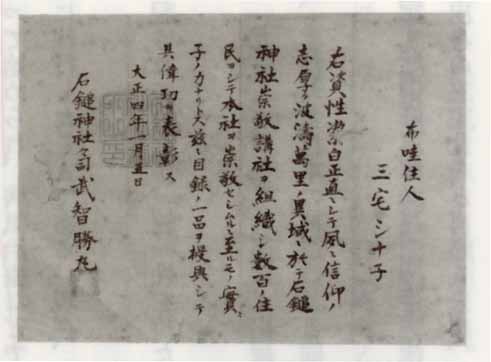 布哇住人
三宅シナ子
右資性潔白正直ニシテ夙ニ信仰ノ
志厚ク波濤萬里ノ異域ニ於テ石鎚
神社崇敬講社ヲ組織シ数百ノ住
民ヲシテ本社ヲ崇敬セシムルニ至ルモノ實ニ
子ノ力ナリトス茲ニ目録ノ一品ヲ授與シテ
其偉功ヲ表彰ス
大正四年一月五日
石鎚神社公司武智勝丸